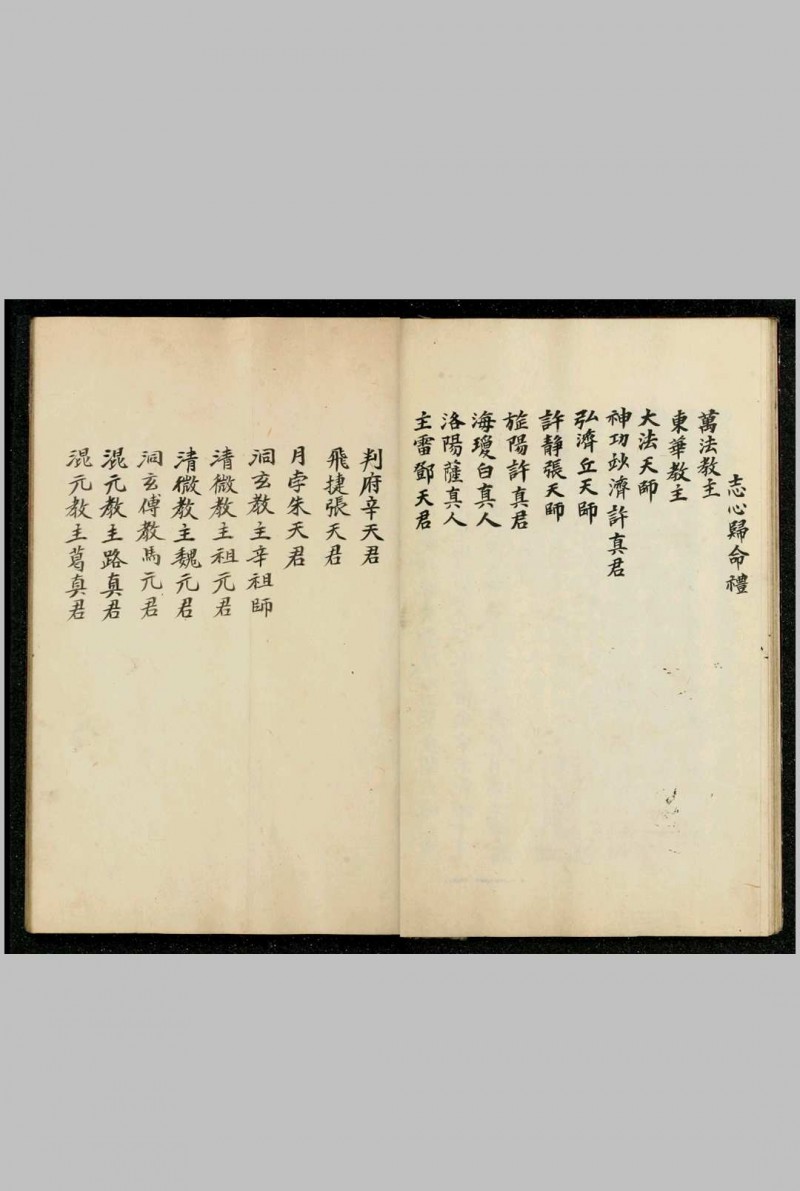 志心歸命禮
萬法教主
東華教主
大法天師
神功妙濟許真君
弘濟丘天師
許靜張天師
旌陽許真君
海瓊白真人
洛陽薩真人
主雷鄧天君
判府辛天君
飛捷張天君
月孛朱天君
洞玄教主辛祖師
清微教主祖元君
清微教主魏元君
洞玄傳教馬元君
混元教主路真君
混元教主葛真君